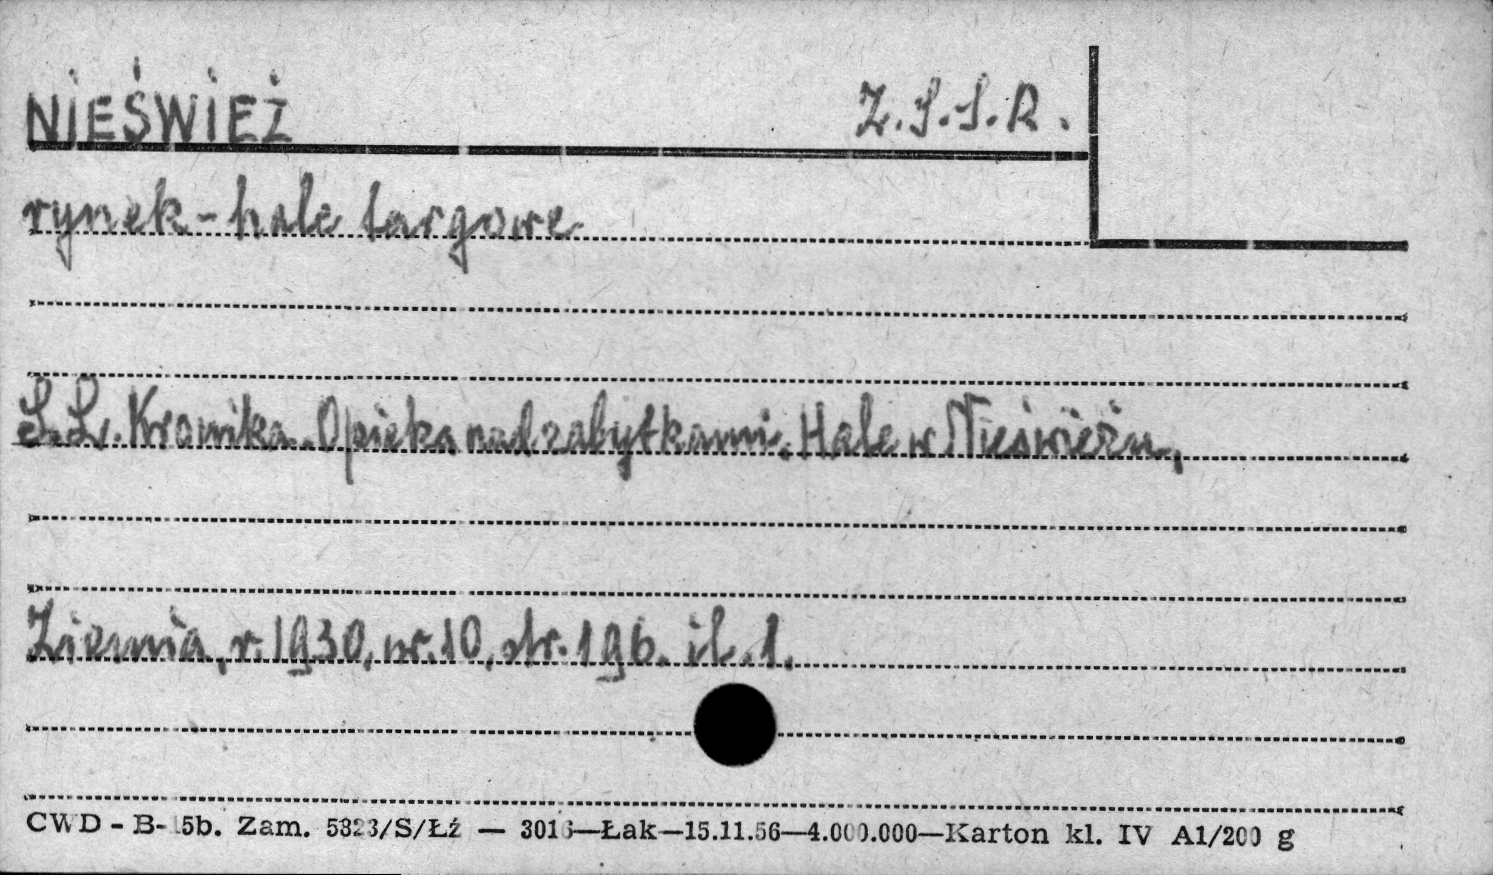 NIEŚWIEŻ Z.S.S.R.
rynek - hale targowe
S.L. Kronika. Opieka nad zabytkami. Hale w Nieświeżu,
Ziemia, r. 1930, nr. 10, str. 196. il. 1.
CWD - B- 5b. Zam. 5823/S/Łź — 3016—Łak—15.11.56—4.000.000—Karton kl. IV A1/200 g